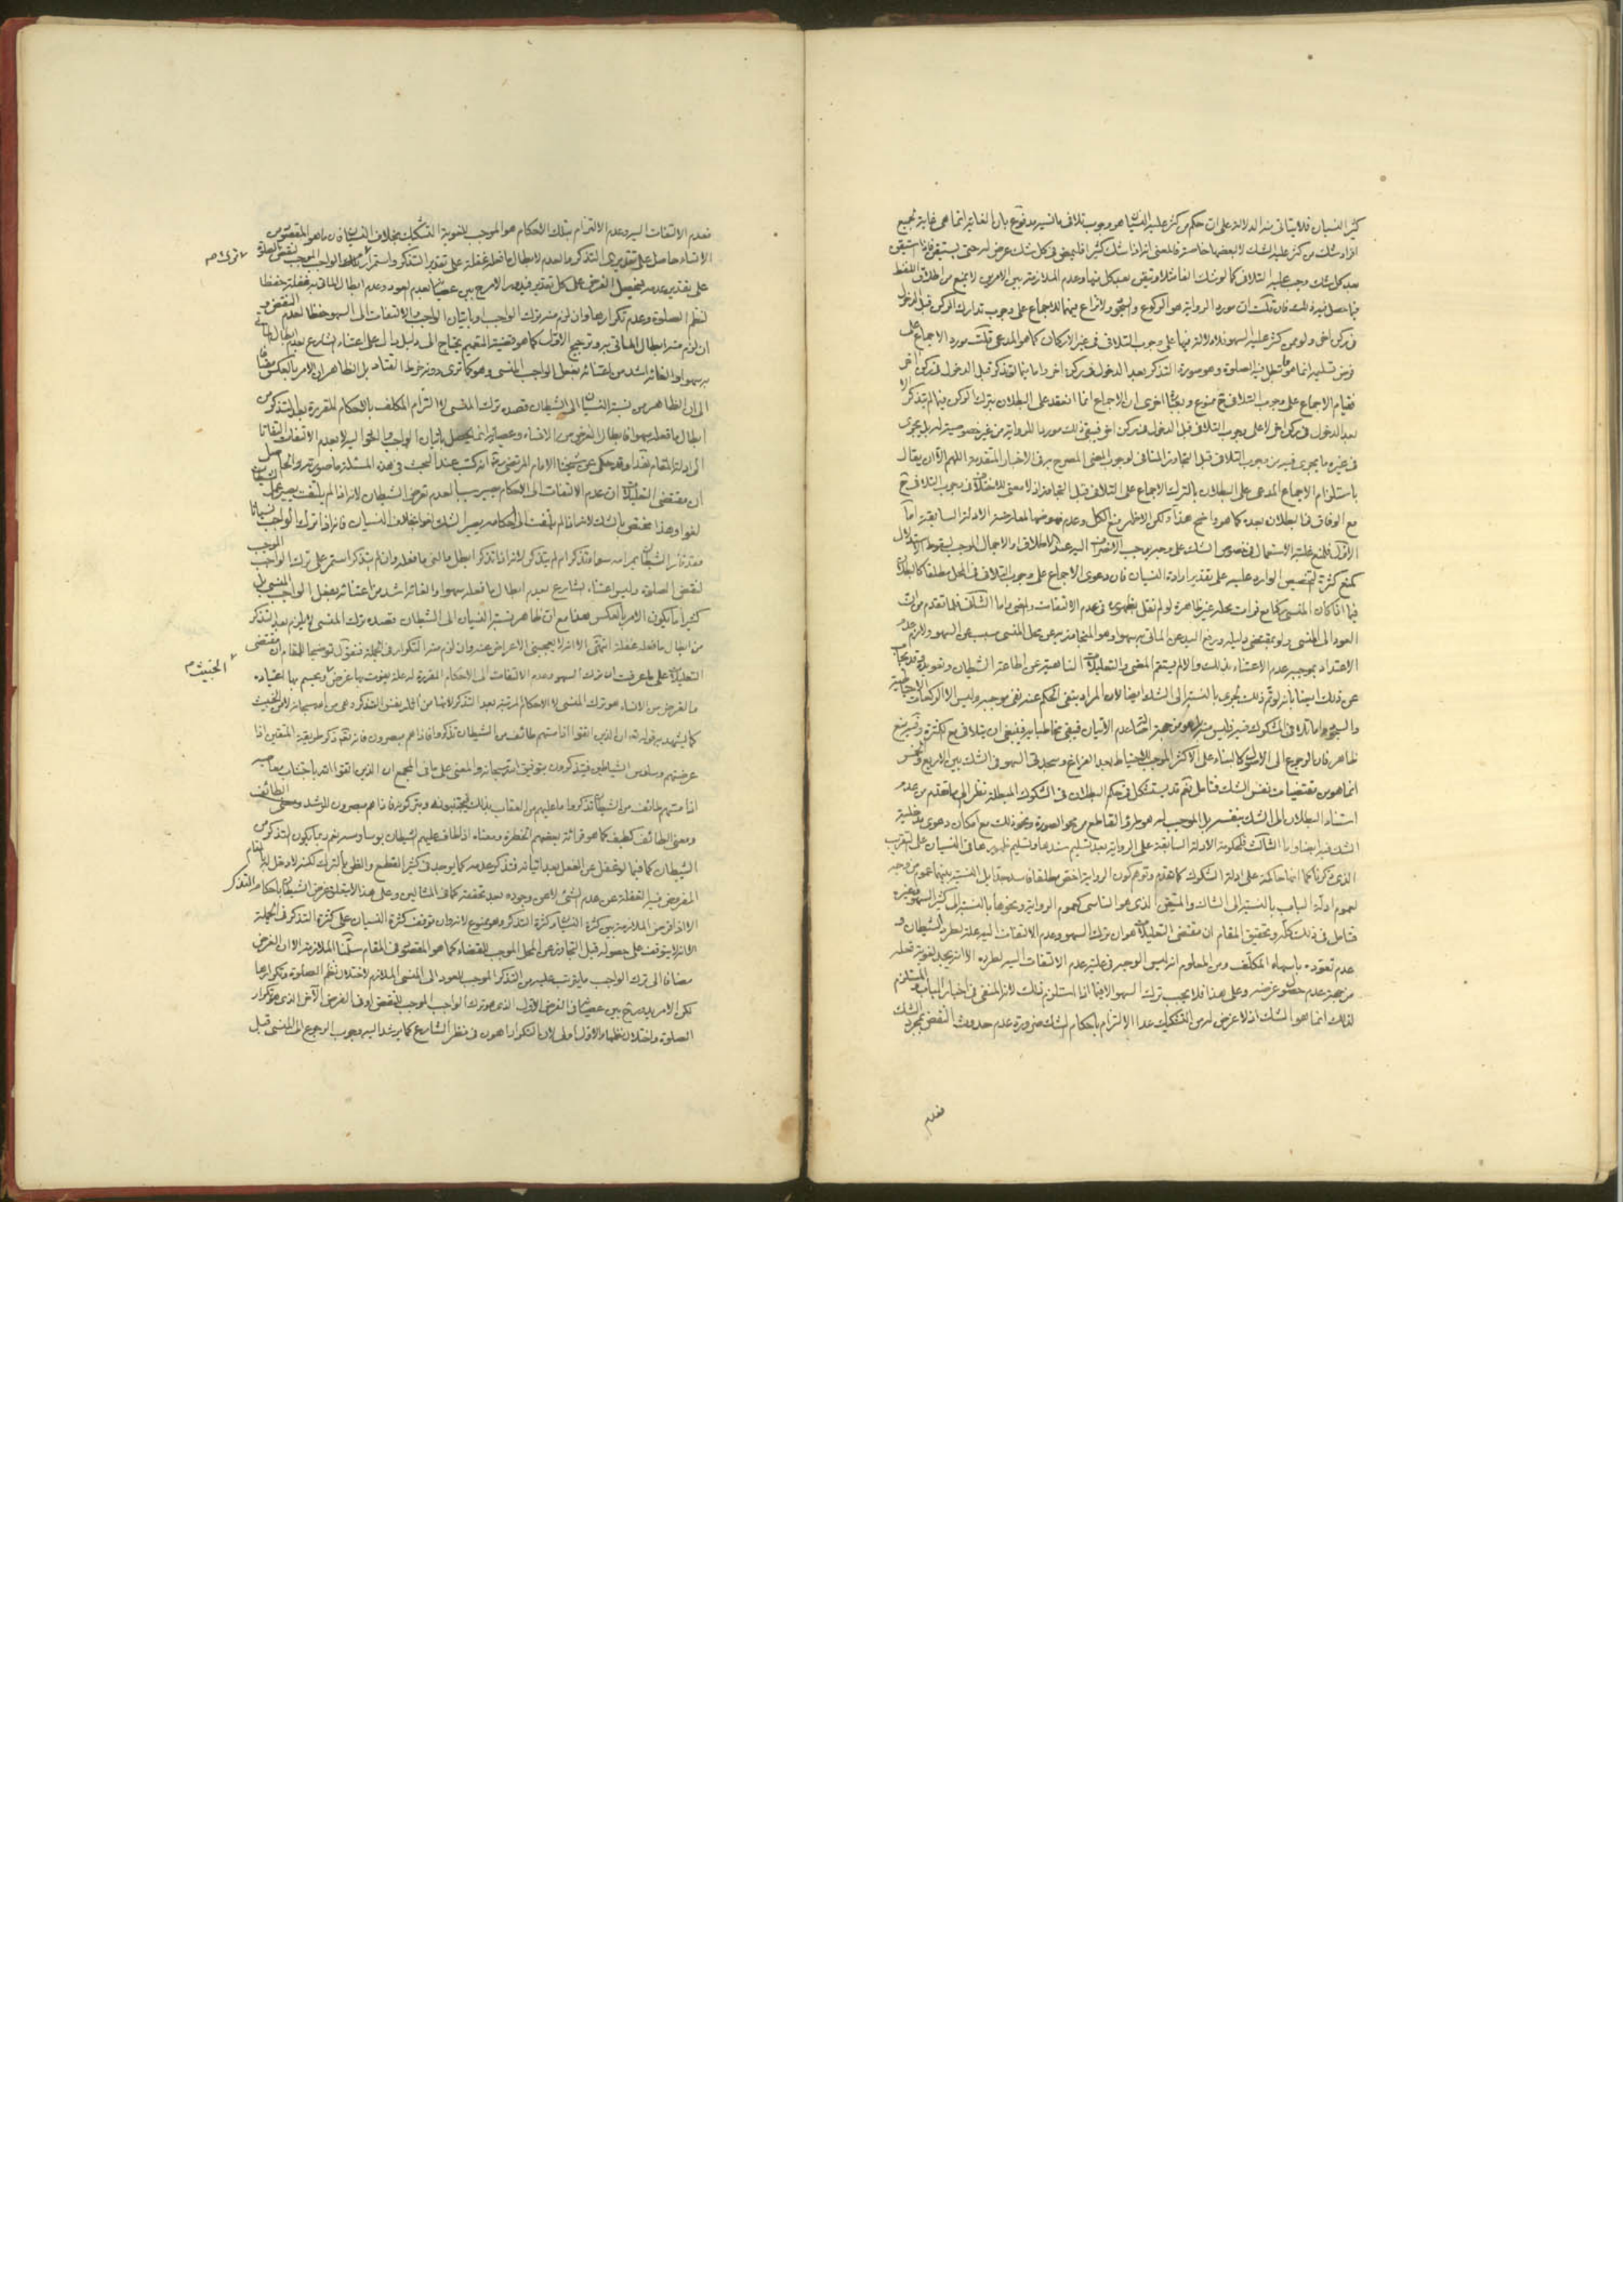 كثير النسيان فلا يتأتى منه الدلالة على ان حكم من كثر عليه النسيان هو وجوب تلافى ما نسيه مدفوع بان الغاية انما هى غاية لجميع
افراد شك من كثر عليه الشك لا لبعضها خاصة فالمعنى انه اذا شك كثيرا فليمض فى كل شك عرض له حتى يستيقن فاذا استيقن
بعد كل شك وجب عليه التلافى كما لو شك الفا مثلا وتيقن بعد كل منها وعدم الملازمة بين الامرين لا يمنع من اطلاق اللفظ
فيما حصل فيه ذلك فان قلت ان مورد الرواية هو الركوع والسجود ولا نزاع فيهما للاجماع على وجوب تدارك الركن قبل الدخول
فى ركن اخر ولو ممن كثر عليه السهو فلا دلالة فيها على وجوب التلافى فى غير الاركان كما هو المدعى قلت مورد الاجماع على
فرض تسليمه انما هو ما تبطل فيه الصلوة وهو صورة التذكر بعد الدخول فى ركن اخر واما فيما لو تذكر قبل الدخول فى ركن اخر
فقيام الاجماع على وجوب التلافى ح ممنوع وبعبارة اخرى ان الاجماع انما انعقد على البطلان بترك الركن فيما لم يتذكر الا
بعد الدخول فى ركن اخر لا على وجوب التلافى قبل الدخول فى ركن اخر فيبقى ذلك موردا للرواية من غير خصوصية له بل يجرى
فى غيره ما يجرى فيه من وجوب التلافى قبل التجاوز المنافى لوجوب المضى المصرح به فى الاخبار المتقدمة اللهم الا ان يقال
باستلزام الاجماع المدعى على البطلان بالترك الاجماع على التلافى قبل التجاوز اذ لا معنى للاختلاف فى وجوب التلافى ح
مع الوفاق فى البطلان بعده كما هو واضح هذا ولكن الاظهر منع الكل وعدم نهوضها لمعارضة الادلة السابقة اما
الاول فلمنع غلبة الاستعمال فى خصوص الشك على وجه يوجب الانصراف اليه عند الاطلاق او الاجمال الموجب لسقوط الاستدلال
كمنع كثرة التخصيص الوارد عليه على تقدير ارادة النسيان فان دعوى الاجماع على وجوب التلافى فى المحل مطلقا كالبطلان
فيما اذا كان المنسى ركنا مع فوات محله غير ظاهرة لو لم نقل بظهوره فى عدم الالتفات والمضى واما الثانى فلما تقدم من ان
العود الى المنسى ولو بمقتضى دليله ورفع اليد عن الماتى به سهوا وهو المتجاوز به عن محل المنسى مسبب عن السهو ولازم عدم
الاعتداد بموجبه عدم الاعتناء بذلك والا لم يستقم المعنى والتعليلات الناهية عن اطاعة الشيطان وتعويده وقد يجاب
عن ذلك ايضا بانه لو تم ذلك لجرى بالنسبة الى الشك ايضا لان المراد بنفى الحكم عنه نفى موجبه وليس الا الركعات الاحتياطية
والسجود واما التلافى فى المشكوك فيه فليس منه بل هو من جهة اصالة عدم الاتيان فيبقى مخاطبا به فينبغى ان يتلافى مع الكثرة وفيه منع
ظاهر فان الرجوع الى الاصل كالبناء على الاكثر الموجب للاحتياط بعد الفراغ وسجدتى السهو فى الشك بين الاربع والخمس
انما هو من مقتضيات نفس الشك فتامل نعم قد يستشكل فى حكم البطلان فى الشكوك المبطلة نظرا الى ما تقدم من عدم
استناد البطلان الى الشك بنفسه بل الموجب له هو طرو القاطع من محو الصورة ونحو ذلك مع امكان دعوى مدخلية
الشك فيه ايضا واما الثالث فلحكومة الادلة السابقة على الرواية بعد تسليم سندها وتسليم ظهورها فى النسيان على التقريب
الذى ذكرناه كما انها حاكمة على ادلة الشكوك كما تقدم وتوهم كون الرواية اخص مطلقا فاسد جدا بل النسبة بينهما عموم من وجه
لعموم ادلة الباب بالنسبة الى الشاك والمتيقن الذى هو الناسى كعموم الرواية ونحوها بالنسبة الى كثير السهو وغيره
فتامل فى ذلك كله وتحقيق المقام ان مقتضى التعليلات هو ان ترك السهو وعدم الالتفات اليه علة لطرد الشيطان و
عدم تعوده باسهاه المكلف ومن المعلوم انه ليس الوجه فى علية عدم الالتفات اليه لطرده الا انه يجب لتفويت فعله
من جهة عدم حصول غرضه وعلى هذا فلا يجب ترك السهو الا فيما اذا استلزم ذلك لانه المنفى فى اخبار الباب والمستلزم
لذلك انما هو الشك اذ لا غرض له من التشكيك عدا الالتزام باحكام الشك ضرورة عدم حدوث النقض بمجرد الشك
فعدم
فعدم الالتفات اليه وعدم الالتزام بتلك الاحكام هو الموجب لتفويته التشكيك بخلاف النسيان فان ما هو المقصود من
الانساء حاصل على تقديرى التذكر وعدمه لابطال ما فعله غفلة على تقدير التذكر واستمرار ترك الواجب الموجب لنقض الصلوة
على تقدير عدمه فيحصل الغرض على كل تقدير فيدور الامر ح بين عصيانه بعدم العود وعدم ابطال الماتى به غفلة حفظا
لنظم الصلوة وعدم تكرارها وان لزم منه ترك الواجب او باتيان الواجب والالتفات الى السهو حفظا لعدم النقض و
ان لزم منه ابطال الماتى به وترجيح الاول كما هو قضية التعميم يحتاج الى دليل دال على اعتناء الشارع بعدم ابطال الماتى
به سهوا والغائه اشد من اعتنائه بفعل الواجب المنسى وهو كما ترى دونه خرط القتاد بل الظاهر ان الامر بالعكس مضافا
الى ان الظاهر من نسبة النسيان الى الشيطان قصده ترك المنسى لا التزام المكلف بالاحكام المقررة بعد التذكر من
ابطال ما فعله سهوا فابطال الغرض من الانساء وعصيانه انما يحصل باتيان الواجب
الى ادلة المقام نقدا وقد حكى عن شيخنا الامام المرتضى انه كتب عند البحث فى هذه المسئلة ما صورته والحاصل
ان مقتضى التعليلات ان عدم الالتفات الى الاحكام يصير سببا لعدم تعرض الشيطان لانه اذا لم يلتفت يصير عمل الشيطان
لغوا وهذا مختص بالشك لانه اذا لم يلتفت الى احكامه يصير الشك لغوا بخلاف النسيان فانه اذا ترك الواجب نسيانا
فقد فاز الشيطان بمرامه سواء تذكر ام لم يتذكر لانه اذا تذكر ابطل ما اتى ما فعله وان لم يتذكر استمر على ترك الواجب الموجب
لنقض الصلوة وليس اعتناء الشارع بعدم ابطال ما فعله سهوا والغائه اشد من اعتنائه بفعل الواجب المنسى بل
كثيرا ما يكون الامر بالعكس هذا مع ان ظاهر نسبة النسيان الى الشيطان قصده ترك المنسى لا ما يلزم بعد التذكر
من ابطال ما فعله غفلة انتهى الا انه لا يعجبنى الاعراض عنه وان لزم منه التكرار فى الجملة فنقول توضيحا للمقام ان مقتضى
التعليلات على ما عرفت ان ترك السهو وعدم الالتفات الى الاحكام المقررة له علة يفوت بها غرض ويحسم بها اعتياده
والغرض من الانساء هو ترك المنسى لا الاحكام المرتبة بعد التذكر لانها من اثار نفس التذكر وهى من الله سبحانه لا من الخبيث
كما يشهد به قوله تعالى ان الذين اتقوا اذا مسهم طائف من الشيطان تذكروا فاذا هم مبصرون فانه تعالى ذكر طريقة المتقين اذا
عرضتهم وساوس الشياطين فيتذكرون بتوفيق الله سبحانه والمعنى على ما فى المجمع ان الذين اتقوا الله باجتناب معاصيه
اذا مسهم طائف من الشيطان تذكروا ما عليهم من العقاب بذلك فيجتنبونه ويتركونه فاذا هم مبصرون للرشد ومعنى الطائف
ومعنى الطائف كطيف كما هو قرائة بعضهم الخطرة ومعناه اذا طاف عليهم الشيطان بوساوسه نعم ربما يكون التذكر من
الشيطان كما فيما لو غفل عن الفعل بعد اتيانه فتذكر عدمه كما يوجد فى كثير القطع والظن بالترك لكنه لا دخل له بالمقام
المفروض فيه الغفلة عن عدم الشئ لا عن وجوده بعد تحققه كما فى المثالين وعلى هذا الا يتعلق غرض الشيطان باحكام التذكر
الا اذا فرض الملازمة بين كثرة النسيان وكثرة التذكر وهو ممنوع لانه وان توقف كثرة النسيان على كثرة التذكر فى الجملة
الا انه لا يتوقف على حصوله قبل التجاوز عن المحل الموجب للقضاء كما هو المقصود فى المقام سلمنا الملازمة الا ان الغرض
مضافا الى ترك الواجب ما يترتب عليه من التذكر الموجب للعود الى المنسى الملازم لاختلال نظم الصلوة وتكرارها
لكن الامر يدور ح بين عصيانه فى الغرض الاول الذى هو ترك الواجب الموجب للنقض او فى الغرض الاخر الذى هو تكرار
الصلوة واختلال نظمها والاول اولى لان التكرار اهون فى نظر الشارع كما يرشد اليه وجوب الرجوع الى المنسى قبل
الخبيث م